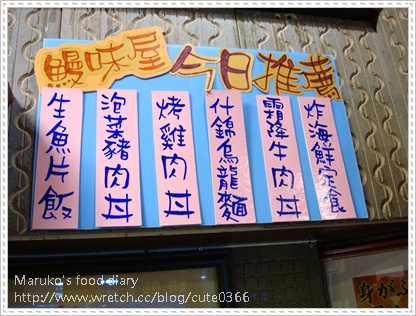 鰻味屋
今日推薦
生魚片飯
泡菜豬肉丼
烤雞肉丼
什錦烏龍麵
霜降牛肉丼
炸海鮮定食
身がふ
Maruko's food diary
http://www.wretch.cc/blog/cute0366